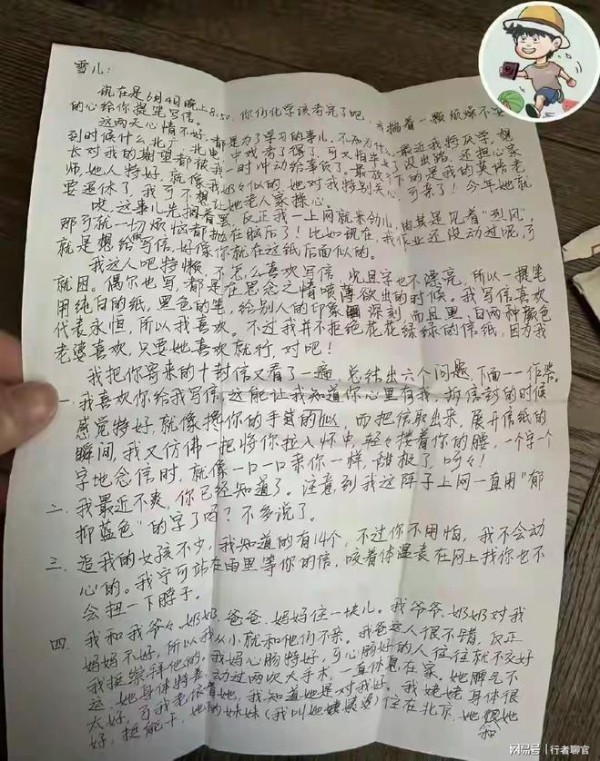 雪儿:
现在是6月4日晚上8:50,你们化学该考完了吧,我揣着一颗
的心给你提笔写信。
这两天心情不好,都是为了学习的事儿,不知为什么,最近我特厌学,想
到时候什么北广、北电、中戏考了得了,可又怕毕业了没出路,还担心家
长对我的期望都被我一时冲动给辜负了。最放不下的是我的英语老
师,她人特好,就像我奶奶似的,她对我特别关心,可亲了!今年她就
要退休了,我可不想让她老人家操心。
哎,这事儿先搁着罢,反正我一上网就来劲儿,尤其是见着“烈风”,
那可就一切烦恼都抛在脑后了!比如现在,我作业还没动过呢,可
就是想给你写信,好像你就在这纸后面似的。
我这人吧特懒,不怎么喜欢写信,况且字也不漂亮,所以一提笔
就困。偶尔也写,都是在思念之情喷薄欲出的时候。我写信喜欢
用纯白的纸,黑色的笔,给别人的印象深刻,而且黑、白两种颜色
代表永恒,所以我喜欢。不过我并不拒绝花花绿绿的信纸,因为我
老婆喜欢,只要她喜欢就行,对吧!
我把你寄来的十封信又看了一遍,总结出六个问题,下面一一作答。
一、我喜欢你给我写信,这能让我知道你心里有我,拆信封的时候
感觉特好,就像搀你的手 似,而把信取出来,展开信纸的
瞬间,我又仿佛一把将你拉入怀中,轻轻搂着你的腰,一个字一个
字地念信时,就像一口一口亲你一样,甜极了,呵呵!
二、我最近不爽,你已经知道了。注意到我这阵子上网一直用“郁
抑蓝色”的字了吗?不多说了。
三、追我的女孩不少,我知道的有14个,不过你不用怕,我不会动
心的。我宁可站在雨里等你的信,咬着体温表在网上找你也不
会扭一下脖子。
四、我和我爷爷、奶奶、爸爸、妈妈住一块儿。我爷爷、奶奶对我
妈妈不好,所以我从小就和他们不亲。我爸这人很不错,反正
我挺崇拜他的。我妈心肠特好,可心肠好的人往往就不交好
运,她身体特差,动过两次大手术,一直休息在家。她脾气不
太好,可我老依着她,我知道她是对我好。我姥姥身体很
好,挺能干,她的妹妹(我叫她姨婆)住在北京,她 她
和
网易号 | 行者聊官